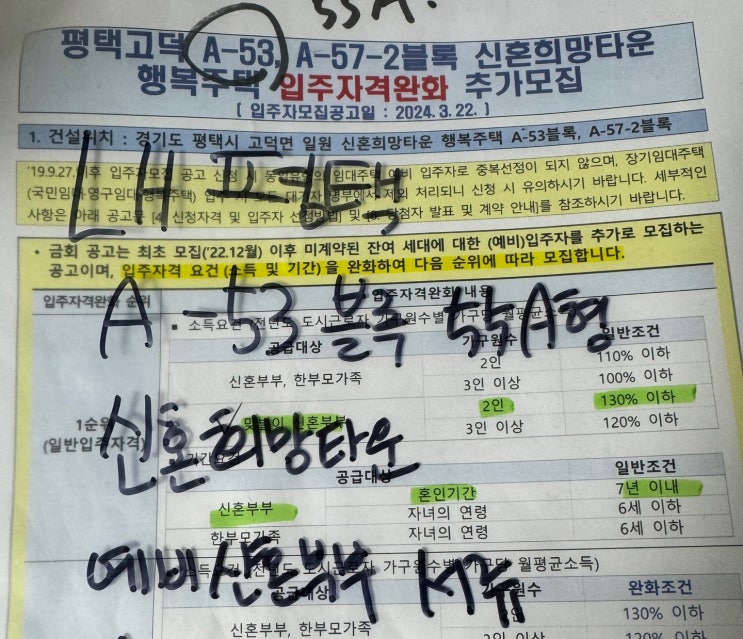 55A.
평택고덕 A-53, A-57-2블록 신혼희망타운
행복주택 입주자격완화 추가모집
[ 입주자모집공고일 : 2024.3.22. ]
1. 건설위치 : 경기도 평택시 고덕면 일원 신혼희망타운 행복주택 A-53블록, A-57-2블록
LH 평택
'19.9.27.이후 입주자모집 공고 신청 시 임대주택 예비 입주자로 중복선정이 되지 않으며, 장기임대주택
(국민임대·영구임대·행복주택) 입주 시 모든 명부에서 제외 처리되니 신청 시 유의하시기 바랍니다. 세부적인
사항은 아래 공고문 [4. 신청자격 및 입주자 선정방법] 및 당첨자 발표 및 계약 안내]를 참조하시기 바랍니다.
• 금회 공고는 최초 모집('22.12월) 이후 미계약된 잔여 세대에 대한 (예비)입주자를 추가로 모집하는
공고이며, 입주자격 요건(소득 및 기간)을 완화하여 다음 순위에 따라 모집합니다.
입주자격완화 순위 입주자격완화 내용
A-53 블록 55A형
▪ 소득요건 전년도 도시근로자 가구원수별 가구당 월평균소득
공급대상 가구원수 일반조건
신혼부부, 한부모가족 2인 110% 이하
3인 이상 100% 이하
1순위
(일반입주자격)
맞벌이 신혼부부 2인 130% 이하
3인 이상 120% 이하
신혼희망타운
기간요건
공급대상 일반조건
신혼부부 혼인기간 7년 이내
자녀의 연령 6세 이하
한부모가족 자녀의 연령 6세 이하
예비신혼부부 서류
소득요건 (전년도 도시근로자 가구원수별 가구당 월평균소득)
공급대상 가구원수 완화조건
신혼부부, 한부모가족 2인 130% 이하
3인 이상 120% 이하